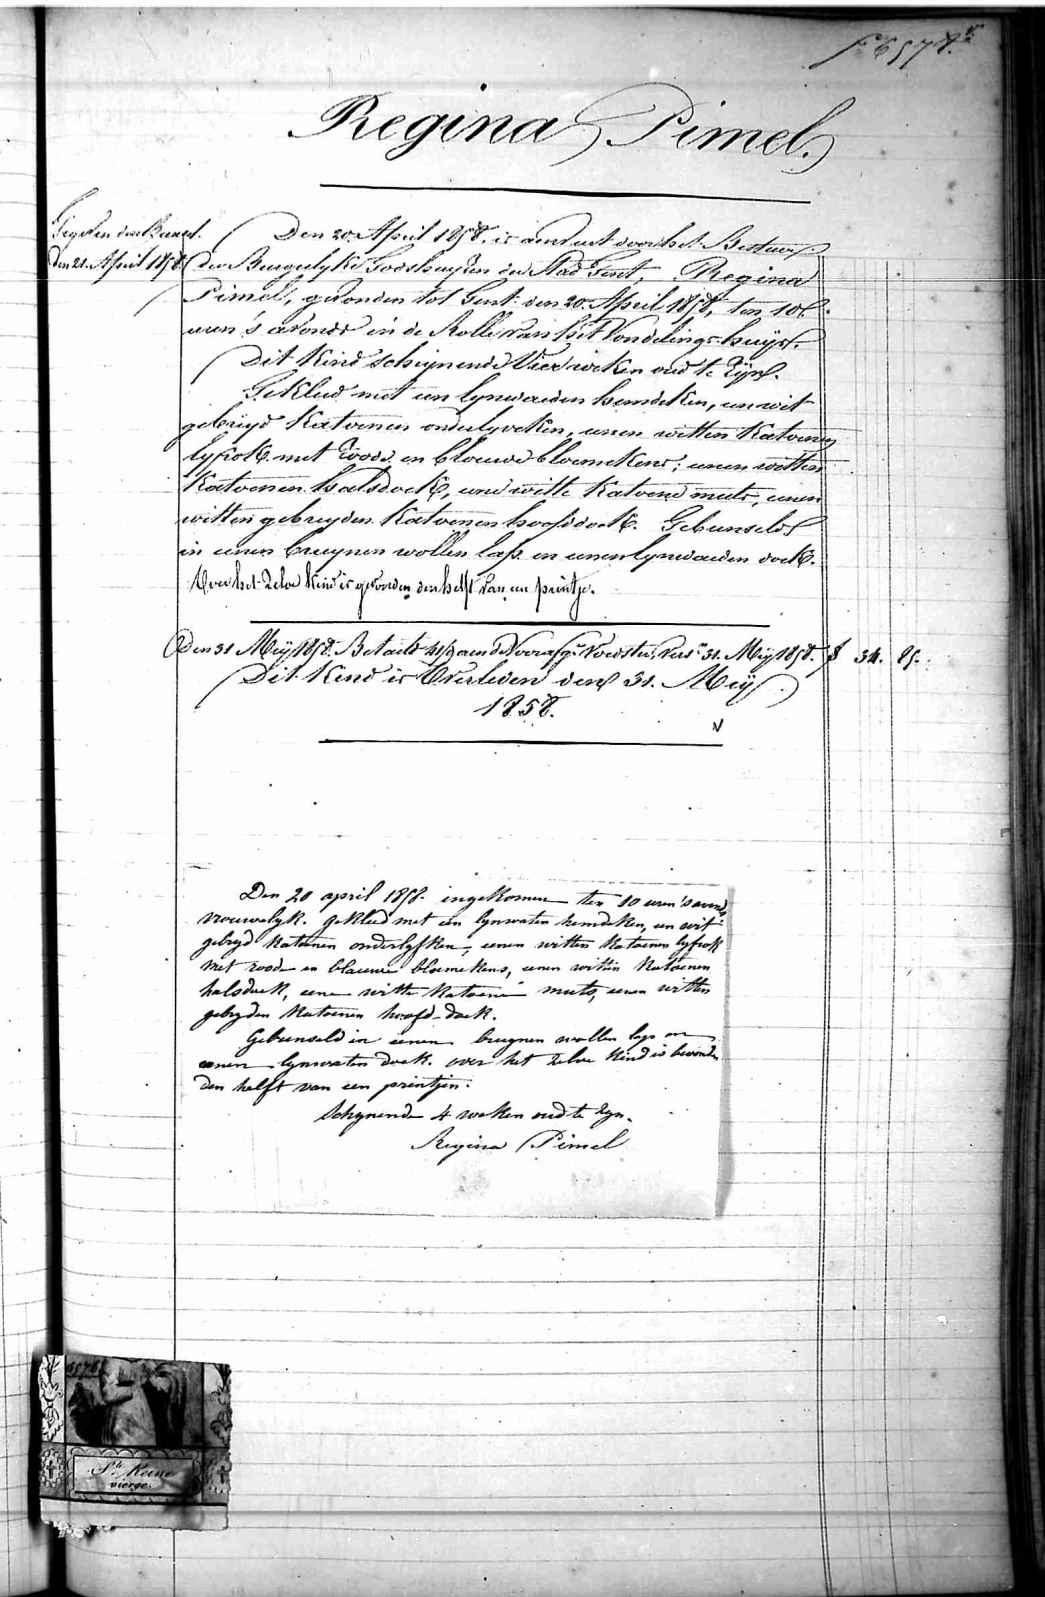 Regina Pimel.
Den 20. April 1858. is aenveert door het Bestuur
den 21. April 1858
der Burgelyke Godshuyzen der Stad Gent, Regina
Pimel, gevonden tot Gent den 20. April 1858, ten 10
uren 's avonds in de Rolle van het Vondelings-huys.
Dit Kind schijnende Vier weken oud te Zijn.
Gekleed met een lynwaeden hemdeken, een wit
gebreyd Katoenen onderlyveken, eenen witten Katoenen
lyfrok met roode en blauwe bloemekens; eenen witten
Katoenen halsdoek, eene witte Katoene muts, eenen
witten gebreyden Katoenen hoofddoek. Gebunseld
in eenen bruynen wollen lap en eenen lynwaeden doek.
Over het Zelve Kind is gevonden den helft van een printje.
Den 31 Mey 1858. Betaeld aen de Voedster, 31. Mey 1858. 34. 85.
Dit Kind is Overleden den 31. Mey
1858.
Den 20 april 1858. ingekomen ten 10 uren 's avonds
vrouwelyk. gekleed met een lynwaten hemdeken, een wit
gebryd katoenen onderlyfken, eenen witten katoenen lyfrok
met roode en blauwe bloemekens, eenen witten katoenen
halsdoek, eene witte katoene muts, eenen witten
gebryden katoenen hoofd-doek.
Gebunseld in eenen bruynen wollen lap en
eenen lynwaten doek. over het zelve kind is bevonden
den helft van een printjen.
Schynende 4 weken oud te zyn.
Regina Pimel
Ste. Reine
vierge.